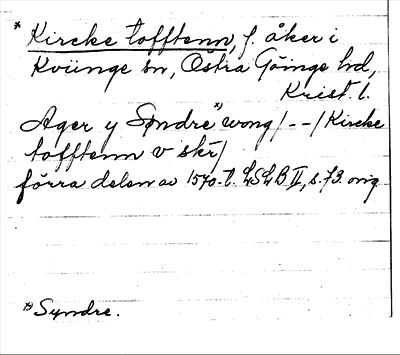 * Kircke tofftenn, f. åker i
Kviinge sn, Östra Göinge hd,
Krist. l.
Ager y Søndre *) wong / - - / Kircke
tofftenn v skr /
förra delen av 1570-t. LSLB II, s. 73. orig
*) Syndre.